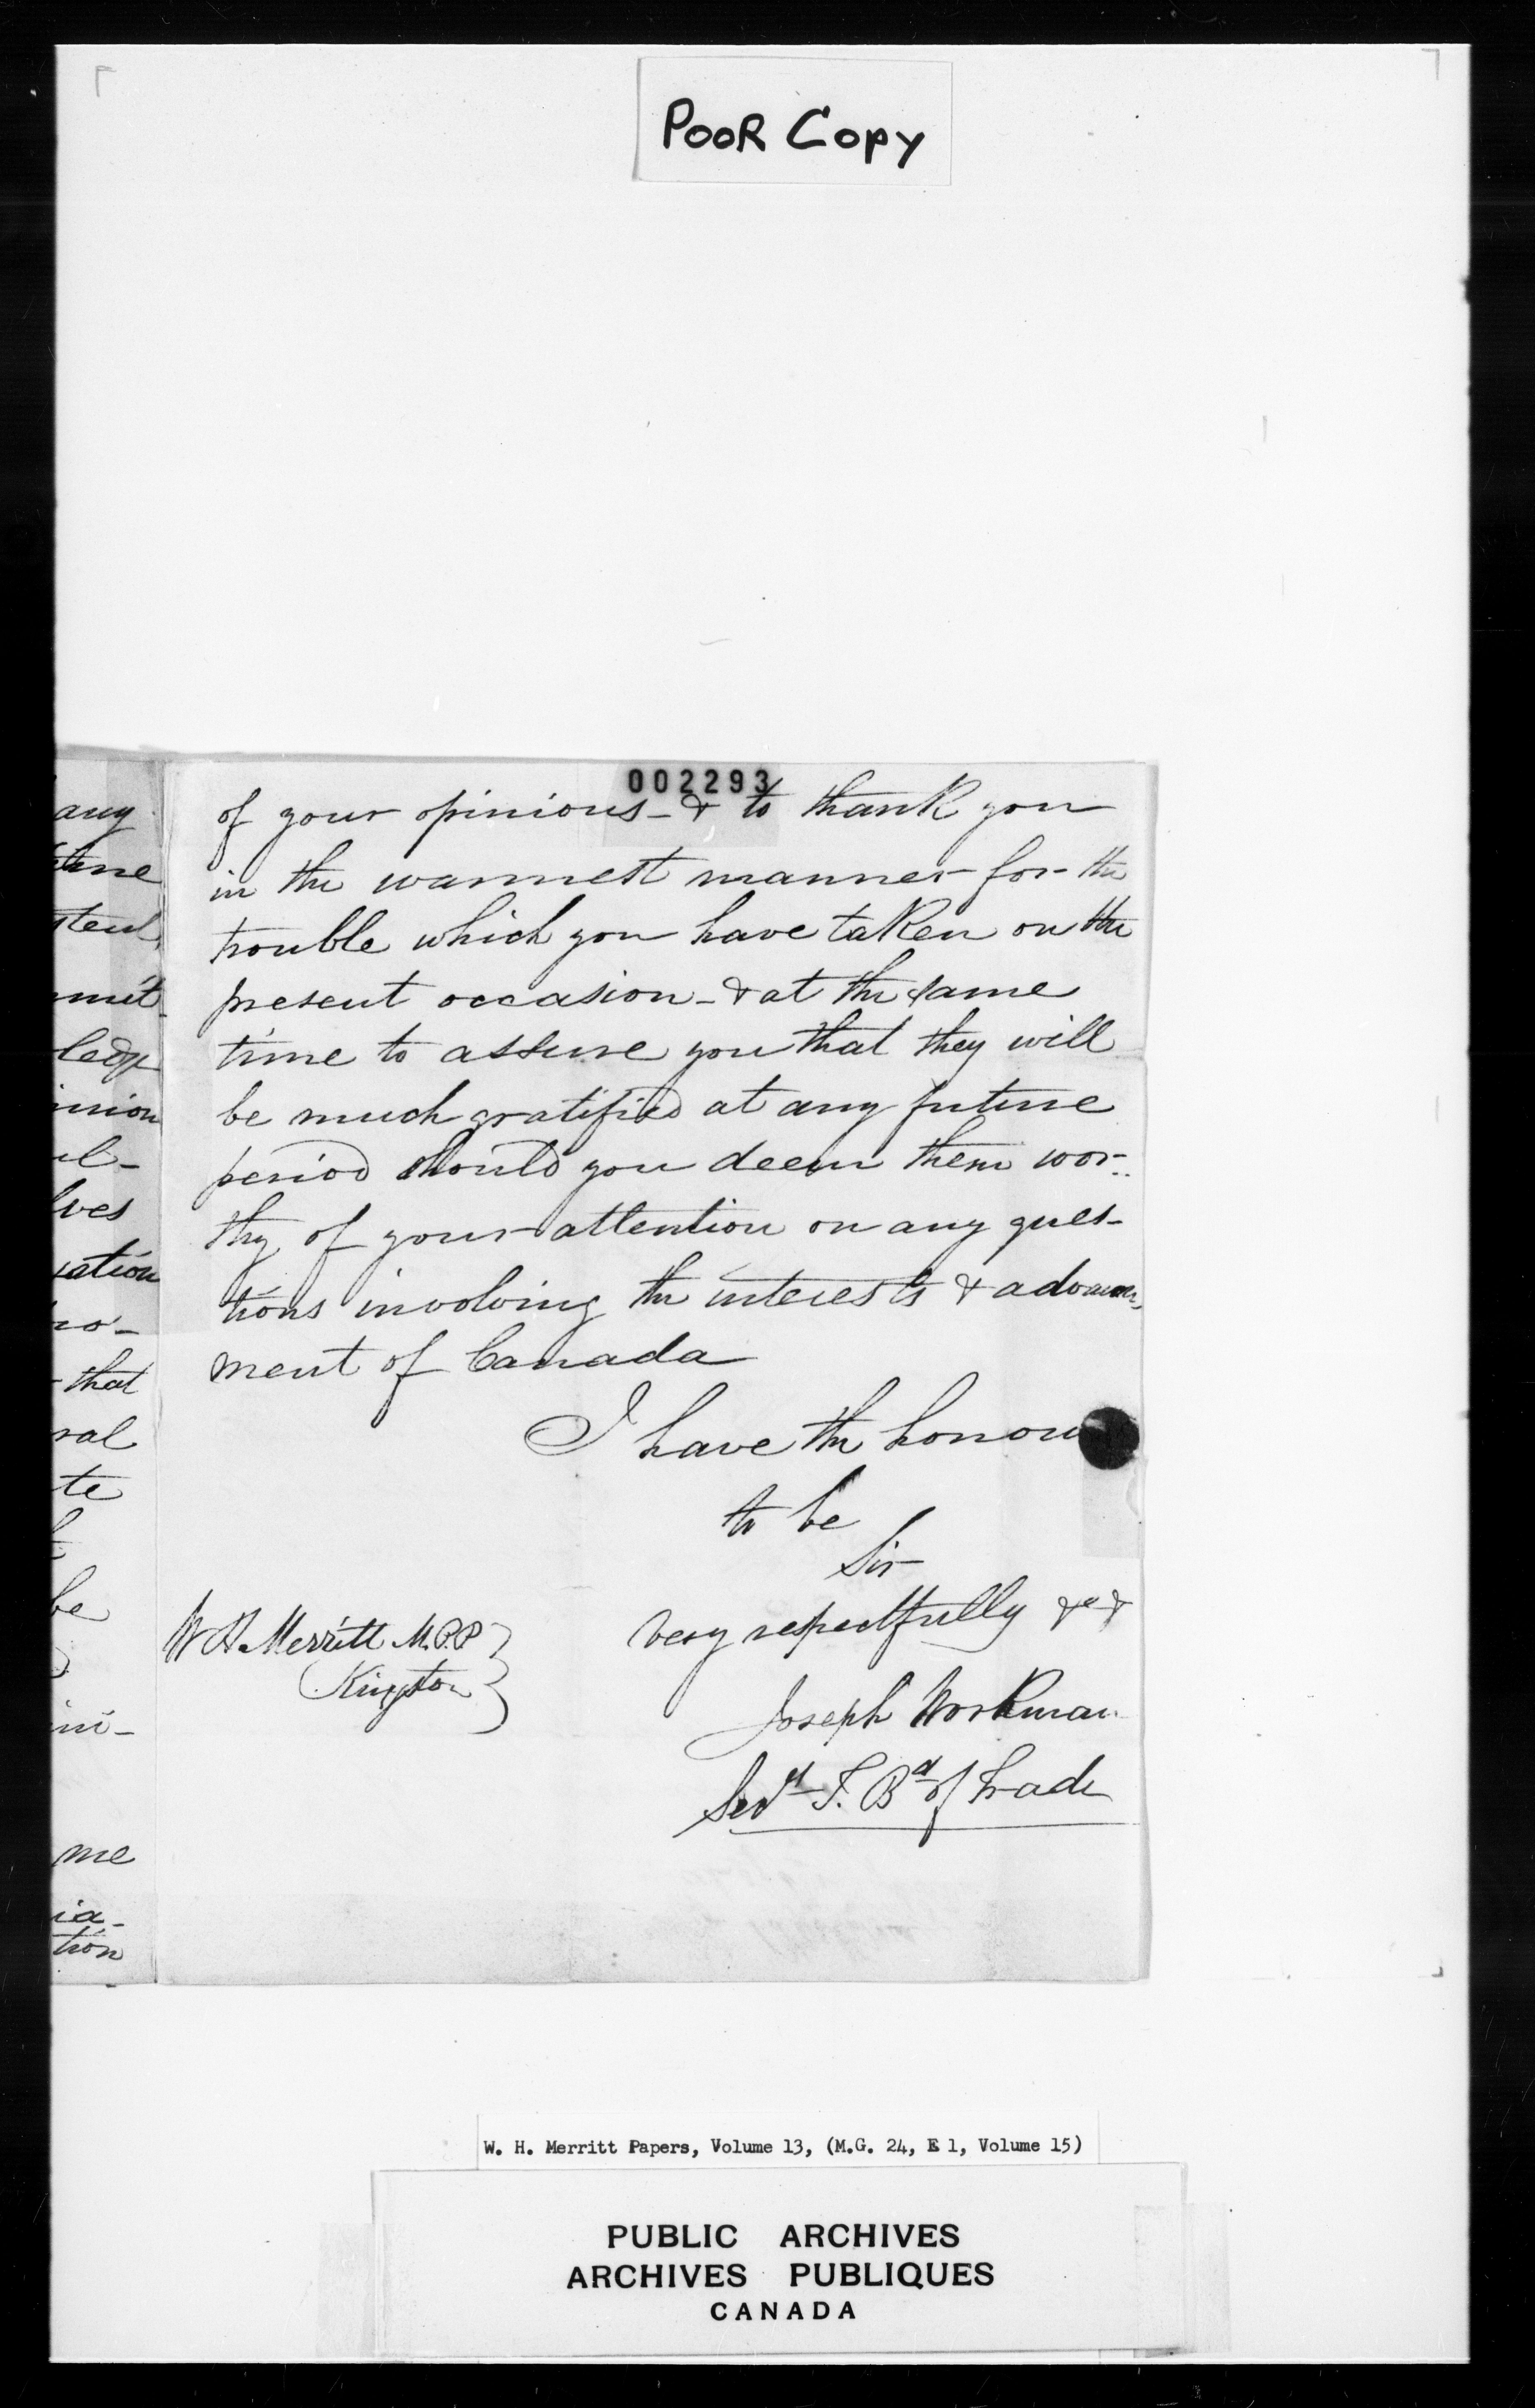 Poor Copy
002293
of your opinions - & to thank you
in the warmest manner for the
trouble which you have taken on the
present occasion - & at the same
time to assure you that they will
be much gratified at any future
period should you deem them wor-
thy of your attention on any ques-
tions involving the interests &
ment of Canada
I have the honour
to be
Sir
very respectfully &c &
W H Merritt M.P.P
Kingston
Joseph Workman
T. Bd of Trade
any
mit
ledge
inion
ul-
lves
ration
ro-
- that
ral
te
be
ini-
me
ia-
tion
W. H. Merritt Papers, Volume 13, (M.G. 24, E 1, Volume 15)
PUBLIC ARCHIVES
ARCHIVES PUBLIQUES
CANADA